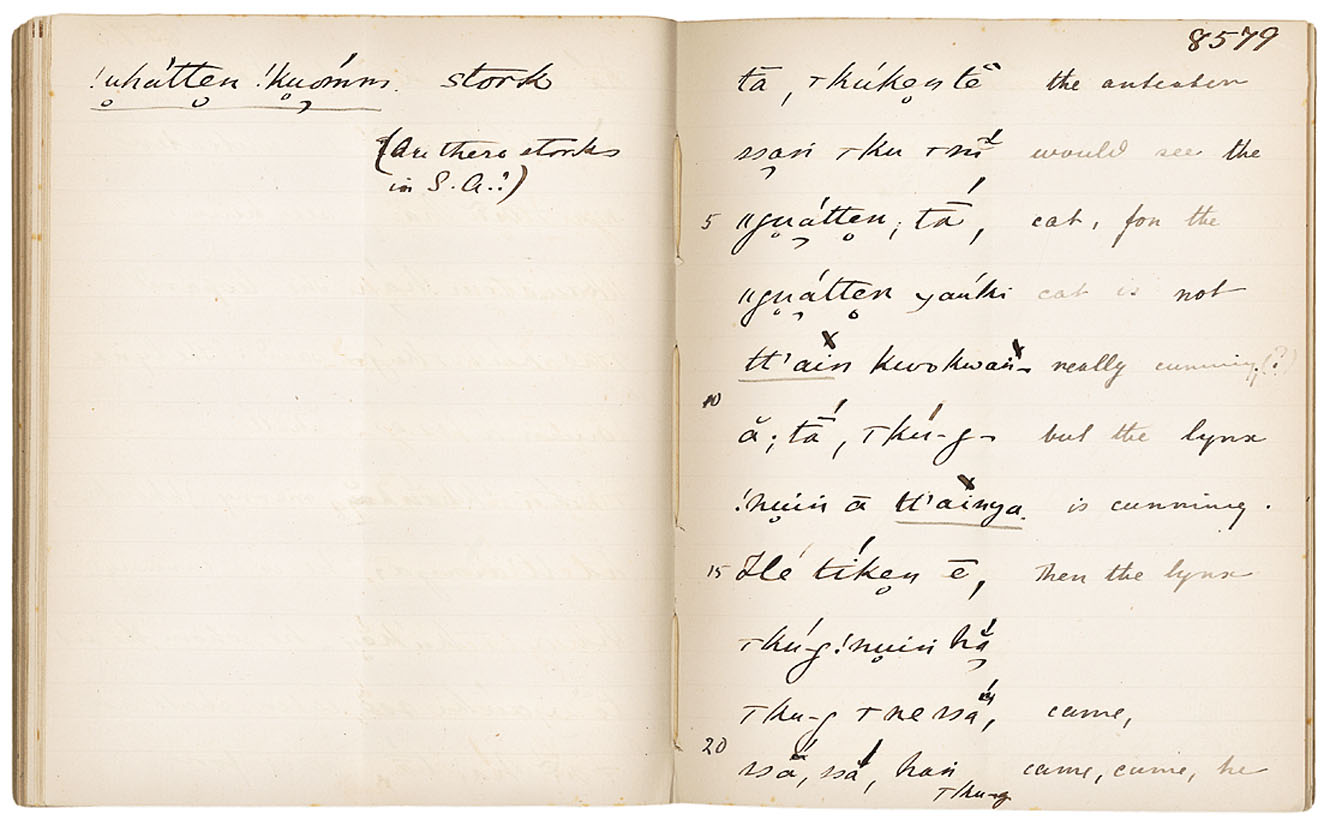 !u̥háttẹn !ku̥ómm. storks
(Are there storks
in S. A.?)
8579
tā, ⊤kúkẹn tĕ the anteater
ssan̄ ⊤ku ⊤nī would see the
5 ‖gu̥áttẹn; tā́, cat, for the
‖gu̥áttẹn yaúki cat is not
tt'aín kwokwań- really cunning, (?)
10
ă; tā́, ⊤kú-g- but the lynx
!nu̥in ā tt'aínya. is cunning.
15 Hé tíkẹn ē, Then the lynx
⊤kú-g!nu̥in hắ
⊤ku-g ⊤ne ssā́, came,
20
ssā́, ssā́, han came, came, he
⊤ku-g